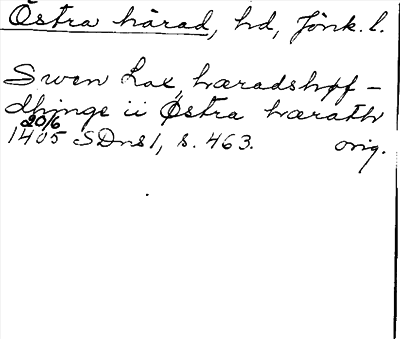 Östra härad, hd, Jönk. l.
Swen Lax, hæradshøf-
dhinge ii Østra hærath
20/6
1405 SDns 1, s. 463. orig.